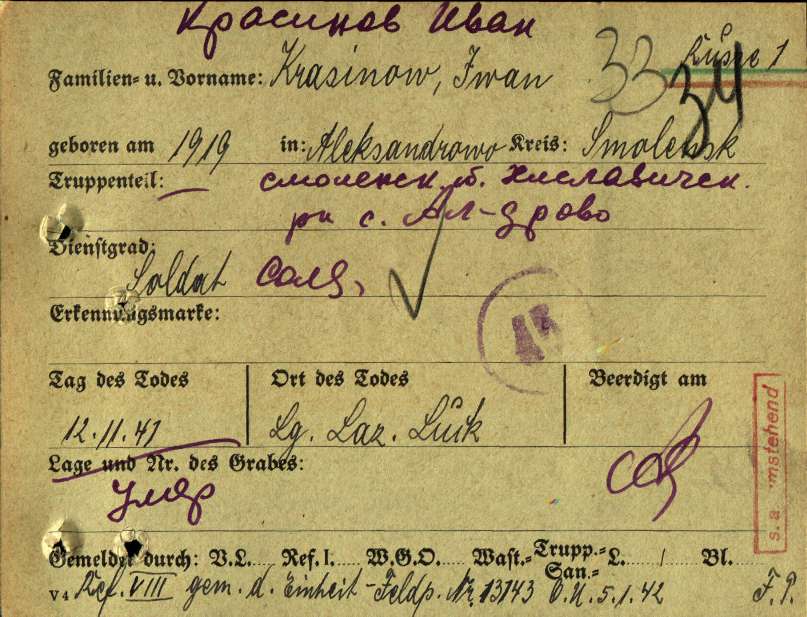 Красинов Иван
33 34 Russe 1
Familien- u. Vorname: Krasinow, Iwan
geboren am 1919 in: Aleksandrowo Kreis: Smolensk
Truppenteil: смоленск. о. Хиславичск.
рн с. Ал-дрово
Dienstgrad:
Soldat Солд.
Erkennungsmarke:
45
Tag des Todes Ort des Todes Beerdigt am
12.11.41 Lg. Laz. Luck
Lage und Nr. des Grabes:
умер
s. a. umstehend
Gemeldet durch: V.L. Ref. I. W.G.O. Wast.- Trupp.- San.- L. / Bl.
V 4 Ref. VIII gem. d. Einheit - Feldp. Nr. 13143 O.U. 5.1.42 F.P.